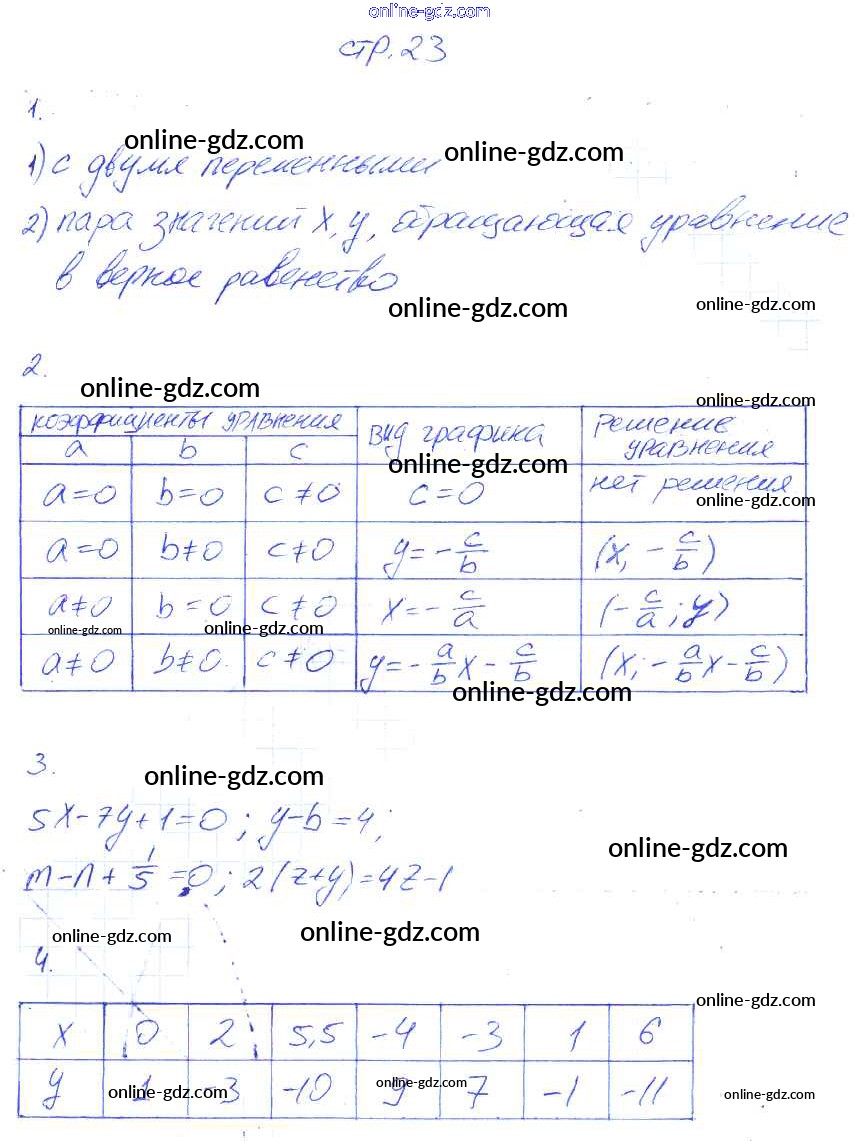 online-gdz.com
стр. 23
1.
online-gdz.com
1) с двумя переменными
online-gdz.com
2) пара значений x, y, обращающая уравнение
в верное равенство
online-gdz.com
online-gdz.com
2.
online-gdz.com
online-gdz.com
коэффициенты уравнения | вид графика | решение уравнения
a | b | c
online-gdz.com
a=0 | b=0 | c≠0 | c=0 | нет решения
online-gdz.com
a=0 | b≠0 | c≠0 | y=-c/b | (x, -c/b)
a≠0 | b=0 | c≠0 | x=-c/a | (-c/a; y)
online-gdz.com
online-gdz.com
a≠0 | b≠0 | c≠0 | y=-a/b x - c/b | (x; -a/b x - c/b)
online-gdz.com
3.
online-gdz.com
5x-7y+1=0; y-b=4;
online-gdz.com
m-n+1/5=0; 2(z+y)=4z-1
online-gdz.com
online-gdz.com
4.
online-gdz.com
x | 0 | 2 | 5,5 | -4 | -3 | 1 | 6
y | 1 | -3 | -10 | 9 | 7 | -1 | -11
online-gdz.com
online-gdz.com
online-gdz.com